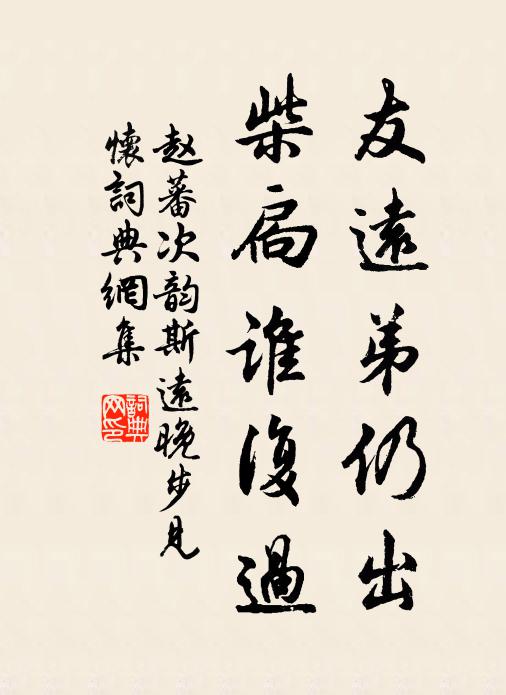 友遠弟仍出
柴扃誰復過
赵蕃次韵斯遠晚步見
懷詞典網集
詞典
网印